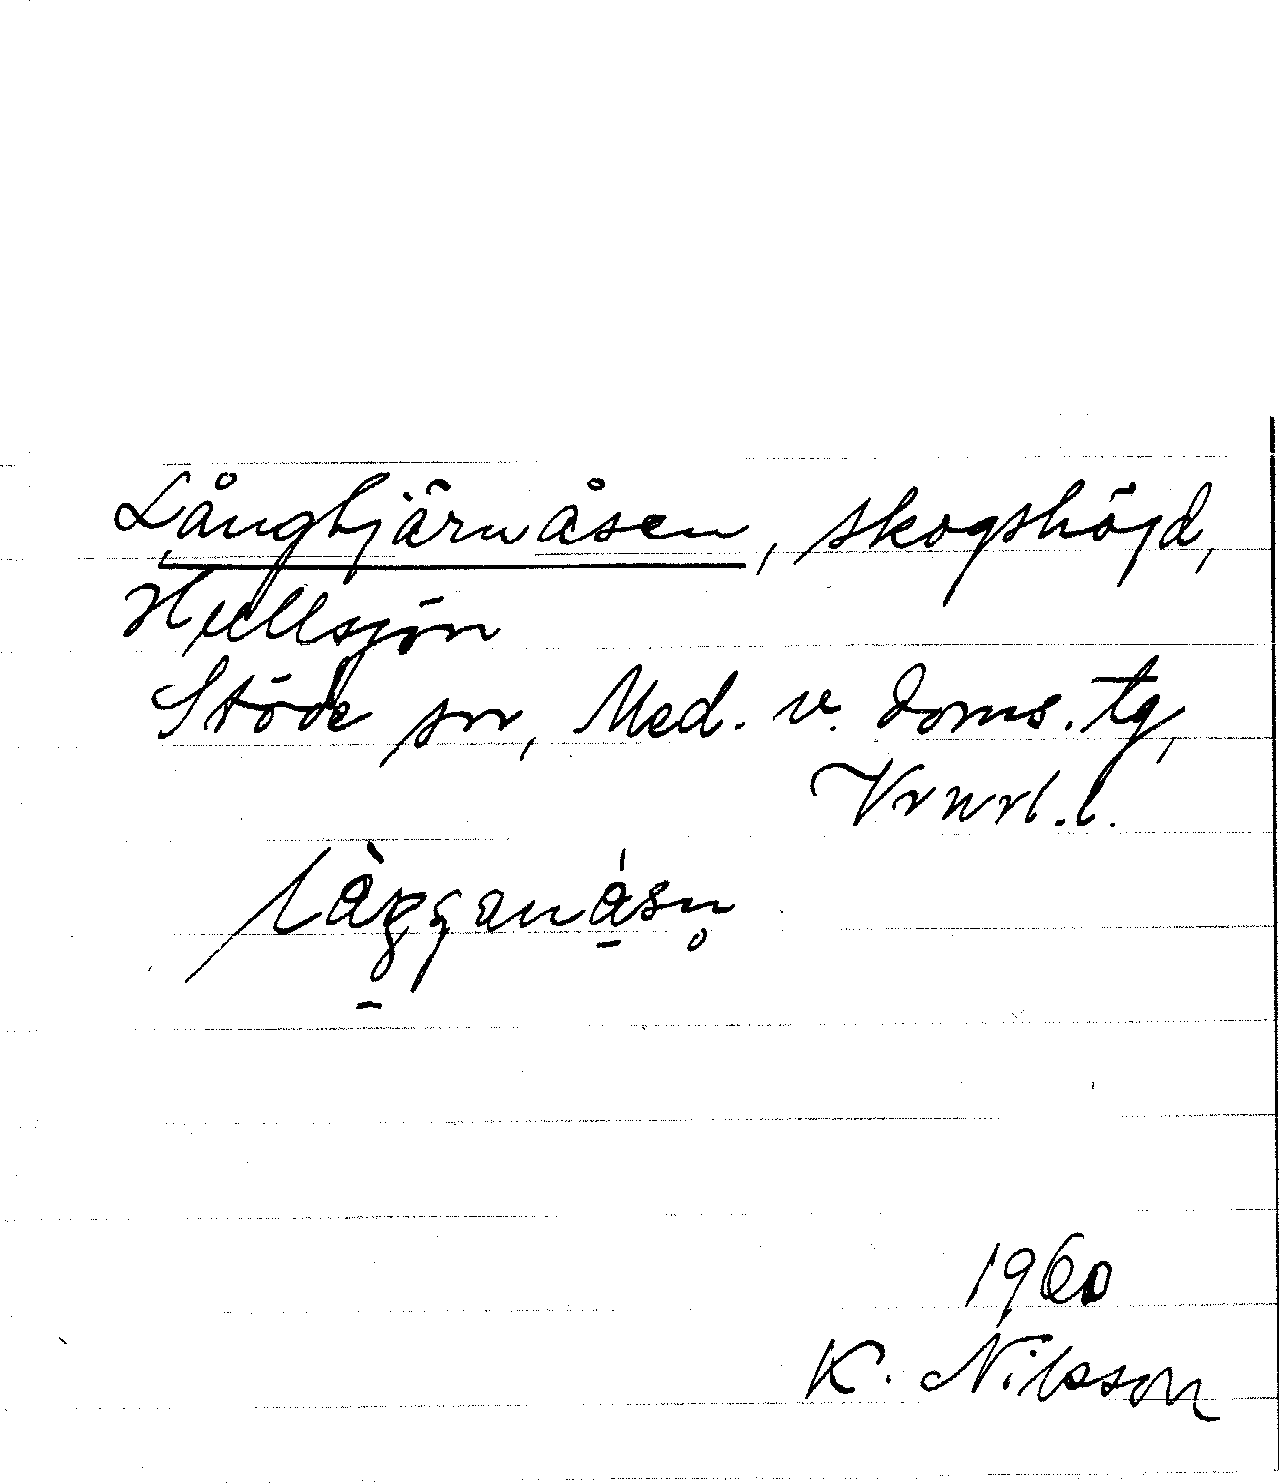 Långtjärnåsen, skogshöjd,
Hullsjön
Stöde sn, Med. v. doms. tg,
Vrnrl. l.
1960
K. Nilsson